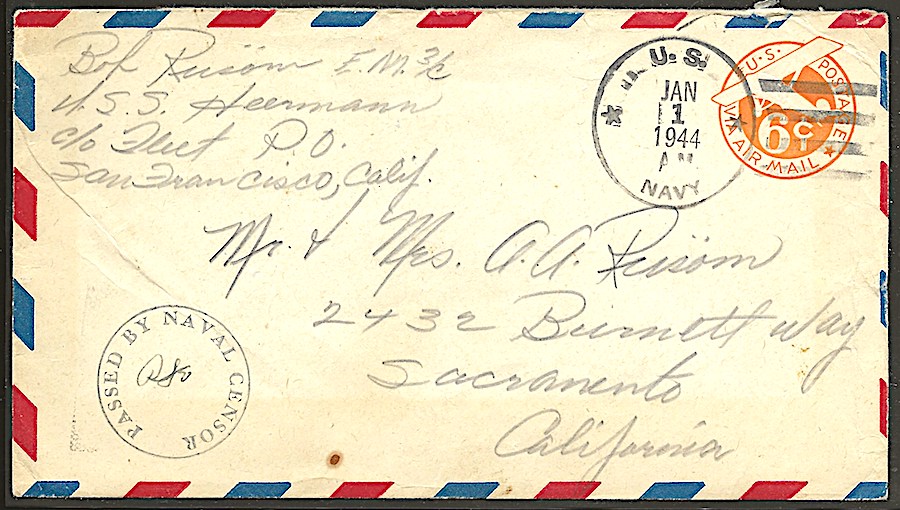 Bob Ruisom E.M. 3/c
U.S.S. Heermann
c/o Fleet P.O.
San Francisco, Calif.
U.S.
JAN
1
1944
NAVY
U.S. POSTAGE
6c
VIA AIR MAIL
Mr. & Mrs. A.A. Ruisom
2432 Burnett Way
Sacramento
California
PASSED BY NAVAL CENSOR